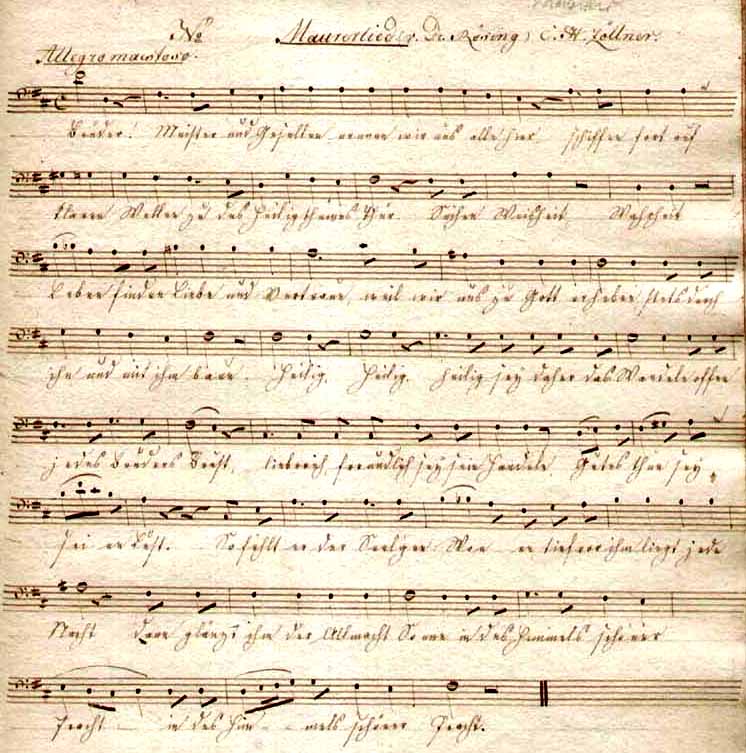 No Maurerlied (v. Dr. Röding) C. H. Zöllner.
Allegro maestoso.
Brüder! Meister und Gesellen nennen wir uns alle hier, schiffen fort auf
klaren Wellen zu des Heiligthumes Thür. Suchen Weisheit, Wahrheit
Leben finden Liebe und Vertraun, weil wir uns zu Gott erheben stets durch
ihn und mit ihm baun. Heilig, Heilig, heilig sey daher das Wandeln offen
jedes Bruders Brust, liebreich, freundlich sey sein Handeln. Gutes thun sey
sei er Lust. So fühlt er der Seelgen Won er tief vor ihm liegt jede
Nacht dann glänzt ihm der Allmacht Sonne in des Himmels schöner
Pracht in des Him - mels schöner Pracht.